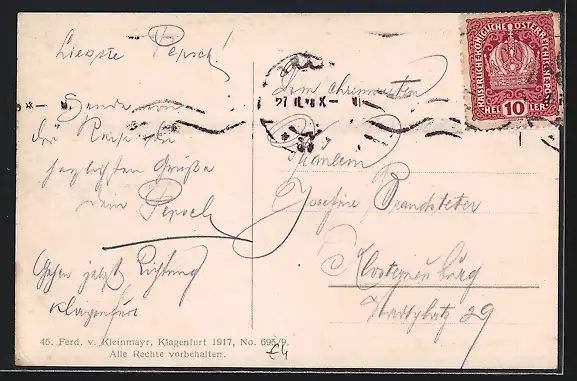 Liebste Pepsch!
Sende von
der Reise die
herzlichsten Grüße
dein Pepsch
Gehen jetzt Richtung
Klagenfurt
45. Ferd. v. Kleinmayr, Klagenfurt 1917, No. 695/9.
Alle Rechte vorbehalten.
£4
KAISERLICHE KÖNIGLICHE ÖSTERREICHISCHE POST
HELLER 10
Dem ehrenwerten
Fräulein
Josefine Brandstetter
Klosterneuburg
Stadtplatz 29